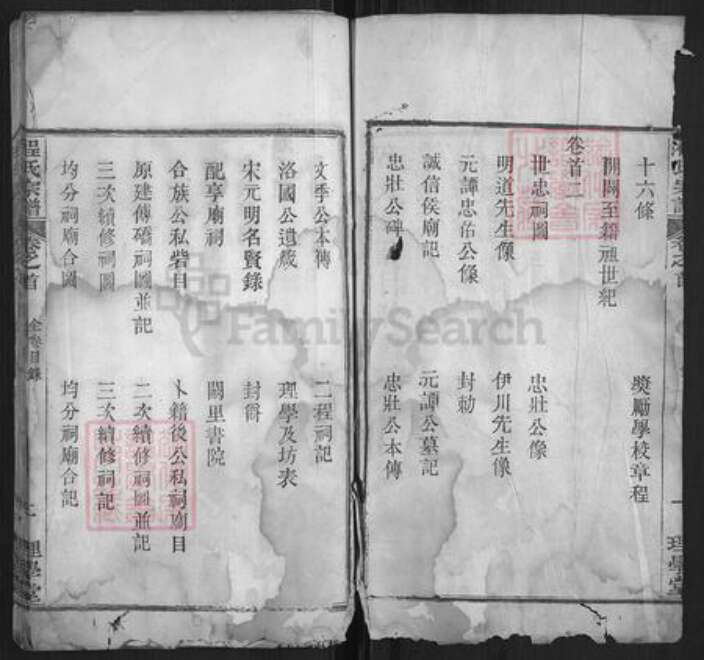 十六條
獎勵學校章程
開闢至籍祖世紀
卷首二
世忠祠圖
忠壯公像
明道先生像
伊川先生像
元譚忠佑公像
封勅
誠信侯廟記
元譚公墓記
忠壯公碑
忠壯公本傳
文季公本傳
二程祠記
洛國公遺蹟
理學及坊表
宋元明名賢錄
封爵
配享廟祠
闕里書院
合族公私砦目
卜籍後公私祠廟目
原建傅磘祠圖並記
二次續修祠圖並記
三次續修祠圖
三次續修祠記
均分祠廟合圖
均分祠廟合記
程氏宗譜
卷之首
全卷目錄
理學堂
理學堂
FamilySearch